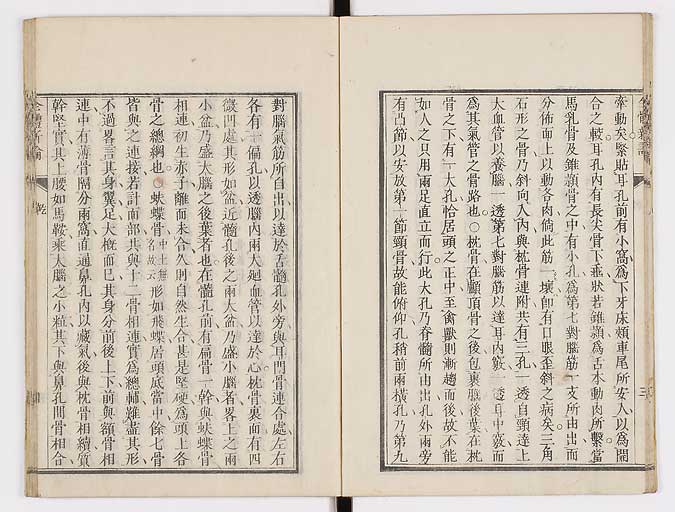 牽動矣緊貼耳孔前有小窩為下牙床頰車尾所安人以為開
合之轇耳孔內有長尖骨下垂狀若錐潁為舌本動肉所繫當
馬乳骨及錐潁骨之中有小孔為第七對腦筋一支所由出而
分佈面上以動各肉倘此筋一壞卽有口眼歪斜之病矣三角
石形之骨乃斜向入內與枕骨連附共有三孔一透自頸達上
大血管以養腦一透第七對腦筋以達耳內竅一透耳中竅而
為其氣管之骨路也○枕骨在顱頂骨之後包裹腦後葉在枕
骨之下有一大孔恰居頭之正中至禽獸則漸趨而後故不能
如人之只用兩足直立而行此大孔乃脊髓所由出孔外兩旁
有凸節以安放第一節頸骨故能俯仰孔稍前兩橫孔乃第九
對腦氣筋所自出以達於舌髓孔外旁與耳門骨連合處左右
各有一偏孔以透腦內兩大迴血管以達於心枕骨裏面有四
微凹處其形如盆近髓孔後之兩大盆乃盛小腦者畧上之兩
小盆乃盛大腦之後葉者也在髓孔前有扁骨一幹與蚨蝶骨
相連初生赤子離而未合久則自然生合甚是堅硬為頭上各
骨之總綱也○蚨蝶骨中土無名故云形如飛蝶居頭底當中餘七骨
皆與之連接若計面部其與十二骨相連實為總輔難盡其形
不過畧言其身翼足大槪而已其身分前後上下前與額骨相
連中有薄骨閒分兩窩直通鼻孔內以藏氣後與枕骨相續質
幹堅實其上腰如馬鞍乘大腦之小粒其下與鼻孔間骨相合